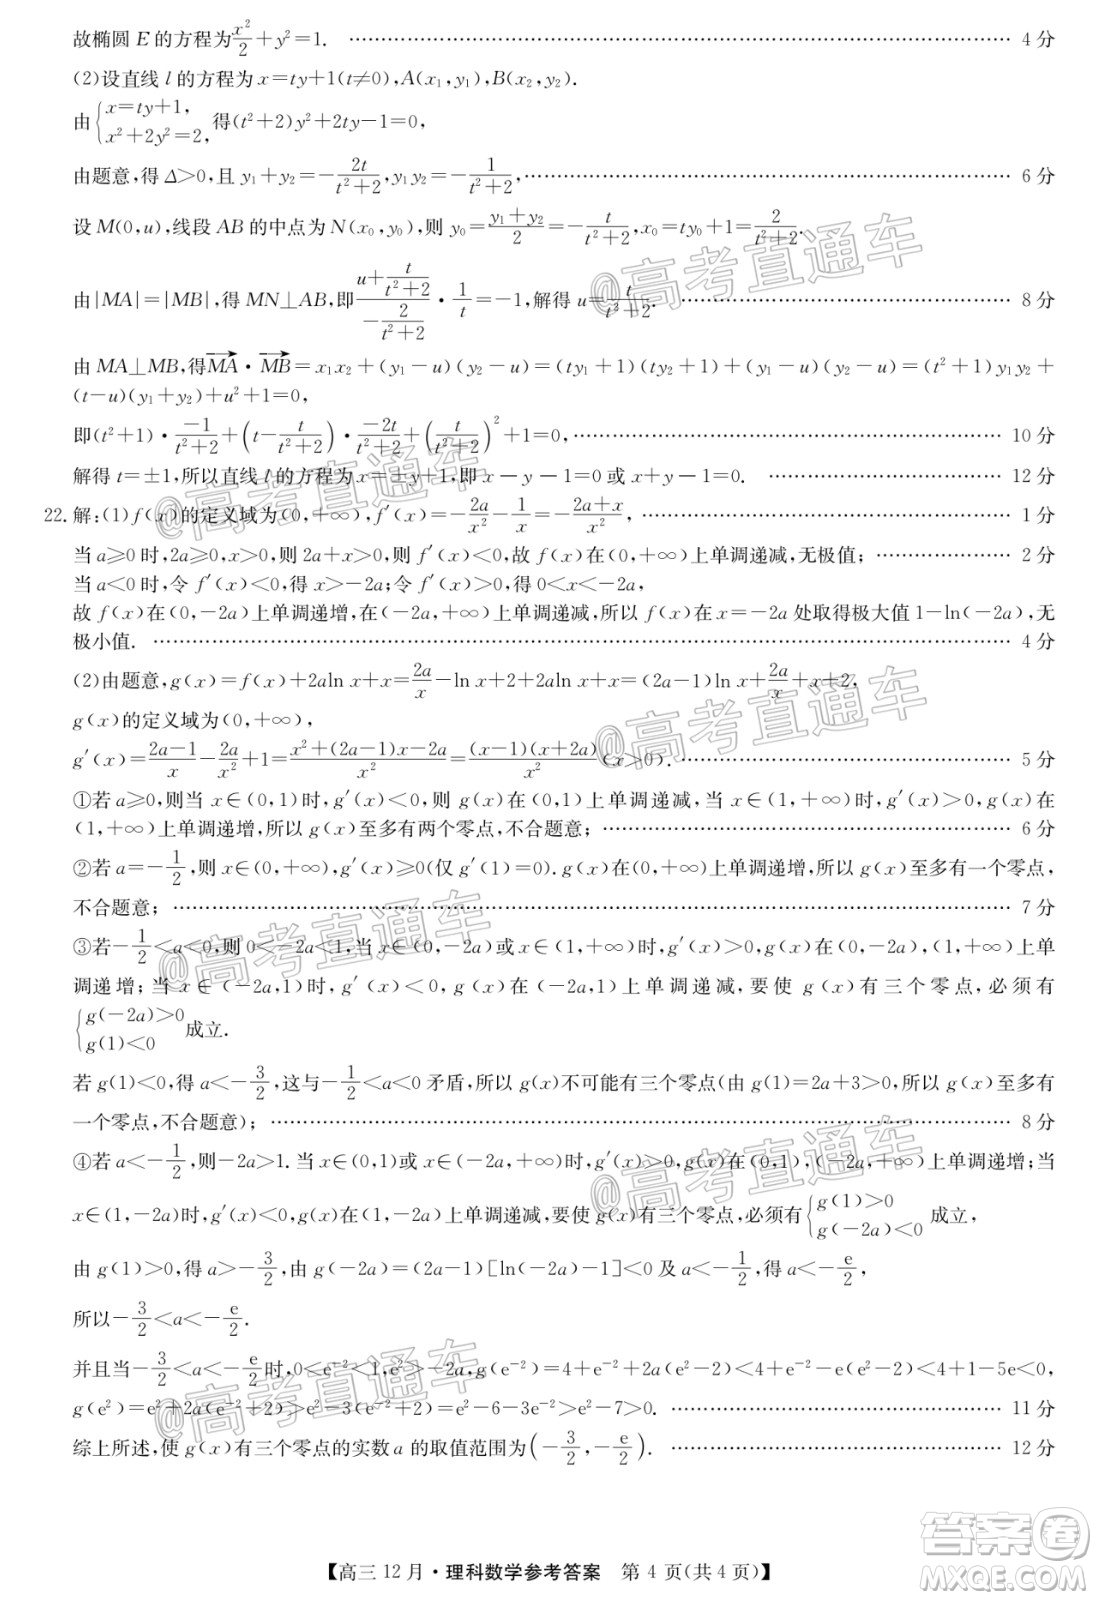 故椭圆 E 的方程为x²/2+y²=1. …… 4 分
(2)设直线 l 的方程为 x=ty+1(t≠0),A(x₁,y₁),B(x₂,y₂).
由{x=ty+1, x²+2y²=2, 得(t²+2)y²+2ty-1=0,
由题意,得 Δ>0,且 y₁+y₂=-2t/(t²+2),y₁y₂=-1/(t²+2), …… 6 分
设 M(0,u),线段 AB 的中点为 N(x₀,y₀),则 y₀=(y₁+y₂)/2=-t/(t²+2),x₀=ty₀+1=2/(t²+2).
由|MA|=|MB|,得 MN⊥AB,即(u+t/(t²+2))/(-2/(t²+2))·1/t=-1,解得 u=t/(t²+2). …… 8 分
由 MA⊥MB,得MA·MB=x₁x₂+(y₁-u)(y₂-u)=(ty₁+1)(ty₂+1)+(y₁-u)(y₂-u)=(t²+1)y₁y₂+
(t-u)(y₁+y₂)+u²+1=0,
即(t²+1)·-1/(t²+2)+(t-t/(t²+2))·-2t/(t²+2)+(t/(t²+2))²+1=0, …… 10 分
解得 t=±1,所以直线 l 的方程为 x=±y+1,即 x-y-1=0 或 x+y-1=0. …… 12 分
22.解:(1)f(x)的定义域为(0,+∞),f′(x)=-2a/x²-1/x=-(2a+x)/x², …… 1 分
当 a≥0 时,2a≥0,x>0,则 2a+x>0,则 f′(x)<0,故 f(x)在(0,+∞)上单调递减,无极值; …… 2 分
当 a<0 时,令 f′(x)<0,得 x>-2a;令 f′(x)>0,得 0<x<-2a,
故 f(x)在(0,-2a)上单调递增,在(-2a,+∞)上单调递减,所以 f(x)在 x=-2a 处取得极大值 1-ln(-2a),无
极小值. …… 4 分
(2)由题意,g(x)=f(x)+2aln x+x=2a/x-ln x+2+2aln x+x=(2a-1)ln x+2a/x+x+2,
g(x)的定义域为(0,+∞),
g′(x)=(2a-1)/x-2a/x²+1=(x²+(2a-1)x-2a)/x²=(x-1)(x+2a)/x²(x>0). …… 5 分
①若 a≥0,则当 x∈(0,1)时,g′(x)<0,则 g(x)在(0,1)上单调递减,当 x∈(1,+∞)时,g′(x)>0,g(x)在
(1,+∞)上单调递增,所以 g(x)至多有两个零点,不合题意; …… 6 分
②若 a=-1/2,则 x∈(0,+∞),g′(x)≥0(仅 g′(1)=0).g(x)在(0,+∞)上单调递增,所以 g(x)至多有一个零点,
不合题意; …… 7 分
③若-1/2<a<0,则 0<-2a<1,当 x∈(0,-2a)或 x∈(1,+∞)时,g′(x)>0,g(x)在(0,-2a),(1,+∞)上单
调递增;当 x∈(-2a,1)时,g′(x)<0,g(x)在(-2a,1)上单调递减,要使 g(x)有三个零点,必须有
{g(-2a)>0 g(1)<0 成立.
若 g(1)<0,得 a<-3/2,这与-1/2<a<0 矛盾,所以 g(x)不可能有三个零点(由 g(1)=2a+3>0,所以 g(x)至多有
一个零点,不合题意); …… 8 分
④若 a<-1/2,则-2a>1.当 x∈(0,1)或 x∈(-2a,+∞)时,g′(x)>0,g(x)在(0,1),(-2a,+∞)上单调递增;当
x∈(1,-2a)时,g′(x)<0,g(x)在(1,-2a)上单调递减,要使 g(x)有三个零点,必须有{g(1)>0 g(-2a)<0 成立,
由 g(1)>0,得 a>-3/2,由 g(-2a)=(2a-1)[ln(-2a)-1]<0 及 a<-1/2,得 a<-e/2,
所以-3/2<a<-e/2.
并且当-3/2<a<-e/2时,0<e⁻²<1,e²>-2a,g(e⁻²)=4+e⁻²+2a(e²-2)<4+e⁻²-e(e²-2)<4+1-5e<0,
g(e²)=e²+2a(e⁻²+2)>e²-3(e⁻²+2)=e²-6-3e⁻²>e²-7>0. …… 11 分
综上所述,使 g(x)有三个零点的实数 a 的取值范围为(-3/2,-e/2). …… 12 分
【高三 12 月·理科数学参考答案 第 4 页(共 4 页)】
@高考直通车
@高考直通车
@高考直通车
@高考直通车
@高考直通车
@高考直通车
答案圈
MXQE.COM